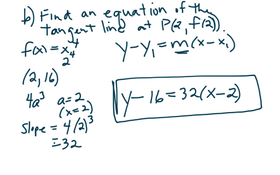 b) Find an equation of the
tangent line at P(2, f(2)).
f(x) = x⁴
2⁴
y - y₁ = m(x - x₁)
(2, 16)
4a³ a = 2
(x = 2)
slope = 4(2)³
= 32
y - 16 = 32(x - 2)